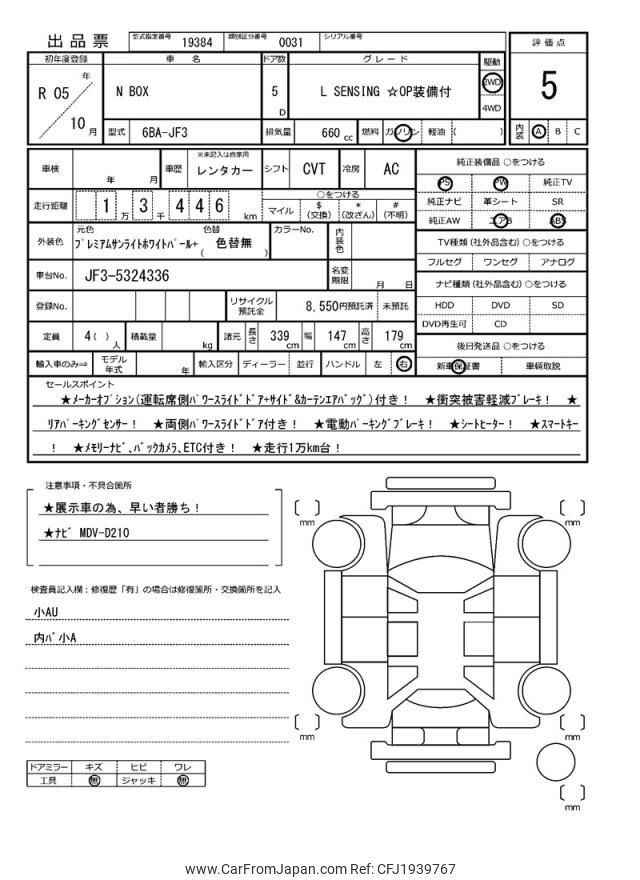 出品票 型式指定番号 19384 類別区分番号 0031 シリアル番号
初年度登録 車名 ドア数 グレード 駆動 評価点
R 05 年 10 月 N BOX 5 D L SENSING ☆OP装備付 2WD 4WD 5
型式 6BA-JF3 排気量 660 cc 燃料 ガソリン 軽油 ( ) 内装 A B C
車検 年 月 車歴 ※未記入は自家用 レンタカー シフト CVT 冷房 AC 純正装備品 ○をつける
PS PW 純正TV
走行距離 1 万 3 千 4 4 6 km ○をつける
マイル $(交換) *(改ざん) #(不明) 純正ナビ 革シート SR
純正AW エアB ABS
外装色 元色 プレミアムサンライトホワイトパール+ 色替 ( 色替無 ) カラーNo. 内装色 TV種類 (社外品含む) ○をつける
フルセグ ワンセグ アナログ
車台No. JF3-5324336 名変期限 月 日 ナビ種類 (社外品含む) ○をつける
登録No. リサイクル預託金 8,550円預託済 未預託 HDD DVD SD
DVD再生可 CD
定員 4 ( ) 人 積載量 kg 諸元 長さ 339 cm 幅 147 cm 高さ 179 cm 後日発送品 ○をつける
輸入車のみ⇒ モデル年式 年 輸入区分 ディーラー 並行 ハンドル 左 右 新車保証書 車輌取説
セールスポイント
★メーカーオプション(運転席側パワースライドドア+サイド&カーテンエアバッグ)付き! ★衝突被害軽減ブレーキ! ★
リアパーキングセンサー! ★両側パワースライドドア付き! ★電動パーキングブレーキ! ★シートヒーター! ★スマートキー
! ★メモリーナビ、バックカメラ、ETC付き! ★走行1万km台!
注意事項・不具合箇所
★展示車の為、早い者勝ち!
★ナビ MDV-D210
検査員記入欄:修復歴「有」の場合は修復箇所・交換箇所を記入
小AU
内バ小A
[ ] mm
[ ] mm
[ ] mm
[ ] mm
[ ] mm
ドアミラー キズ ヒビ ワレ
工具 無 ジャッキ 無
www.CarFromJapan.com Ref: CFJ1939767